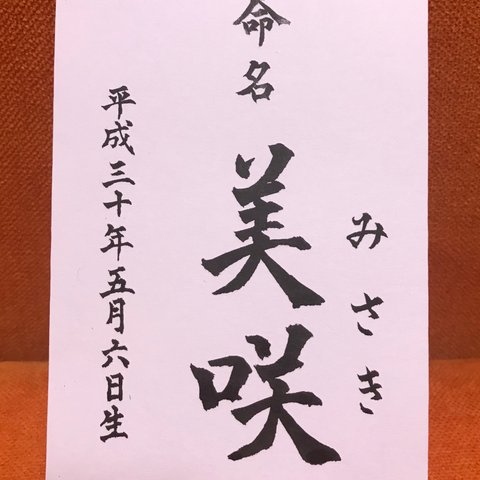 命名
みさき
美咲
平成三十年五月六日生